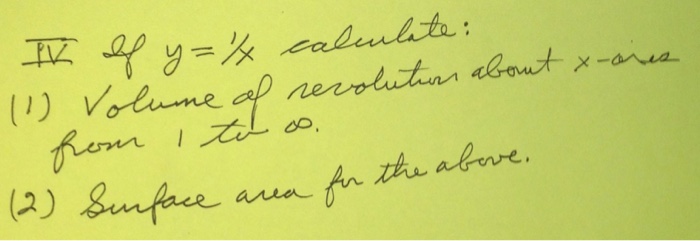 IV If y = 1/x calculate:
(1) Volume of revolution about x-axis
from 1 to ∞.
(2) Surface area for the above.